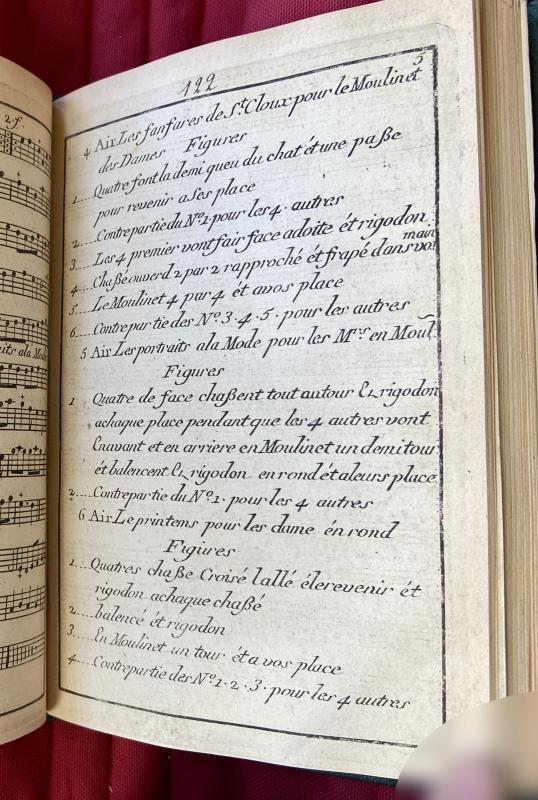 122
5
2 f.
4 Air Les fanfares de St. Cloux pour le Moulinet
des Dames Figures
1....Quatre font la demi queu du chat ét une paße
pour revenir a ses place
2....Contrepartie du No. 1 pour les 4 autres
3....Les 4 premier vont fair face adoite ét rigodon
4....Chaßé ouverd 2 par 2 rapproché ét frapé dans vos main
5....Le Moulinet 4 par 4 ét avos place
6....Contrepartie des No. 3 . 4 . 5 . pour les autres
5 Air Les portraits ala Mode pour les Mrs. en Moul.
Figures
1 Quatre de face chaßent tout autour Et rigodon
achaque place pendant que les 4 autres vont
Enavant et en arriere en Moulinet un demi tour
ét balencent Et rigodon en rond ét aleurs place
2....Contrepartie du No. 1. pour les 4 autres
6 Air Le printems pour les dame én rond
Figures
1....Quatres chaße Croisé lallé éle revenir ét
rigodon achaque chaßé
2....balencé ét rigodon
3....En Moulinet un tour ét a vos place
4....Contrepartie des No. 1 . 2 . 3 . pour les 4 autres
its ala Mode